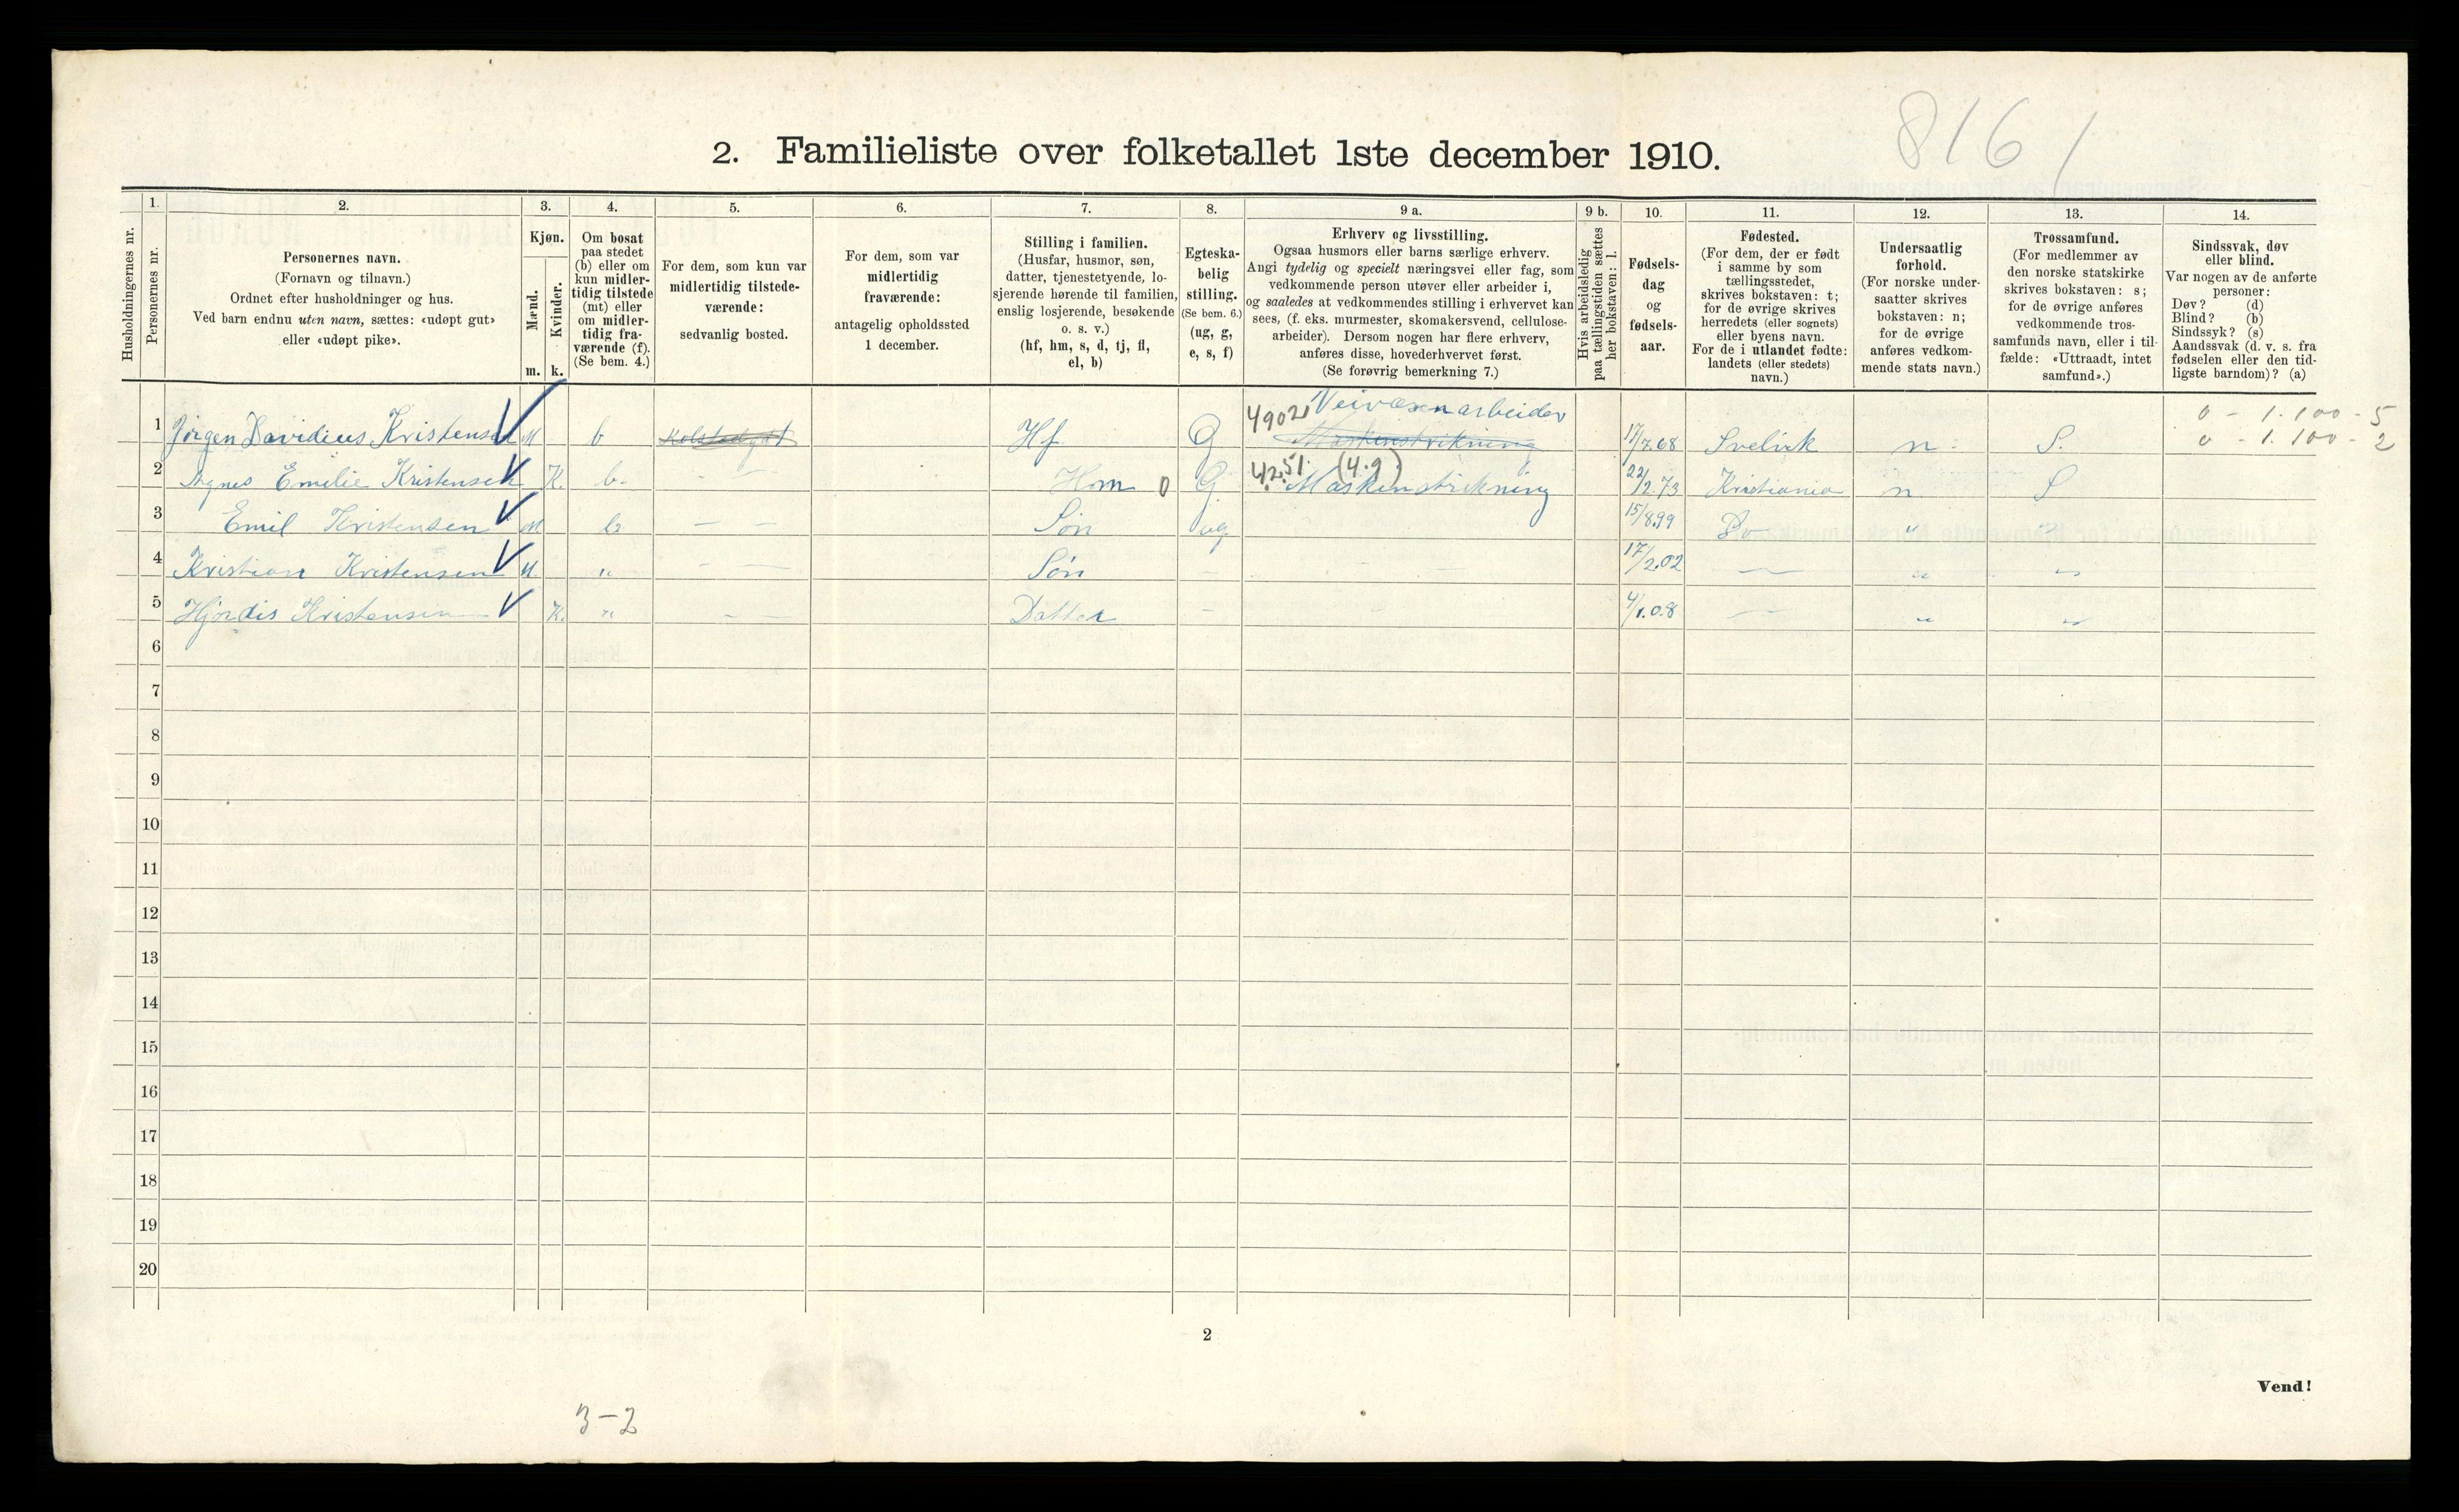 8161
2. Familieliste over folketallet 1ste december 1910.
Husholdningernes nr.
1.
Personernes nr.
2.
Personernes navn.
(Fornavn og tilnavn.)
Ordnet efter husholdninger og hus.
Ved barn endnu uten navn, sættes: «udøpt gut»
eller «udøpt pike».
3.
Kjøn.
Mænd.
Kvinder.
m.
k.
4.
Om bosat
paa stedet
(b) eller om
kun midler-
tidig tilstede
(mt) eller
om midler-
tidig fra-
værende (f).
(Se bem. 4.)
5.
For dem, som kun var
midlertidig tilstede-
værende:
sedvanlig bosted.
6.
For dem, som var
midlertidig
fraværende:
antagelig opholdssted
1 december.
7.
Stilling i familien.
(Husfar, husmor, søn,
datter, tjenestetyende, lo-
sjerende hørende til familien,
enslig losjerende, besøkende
o. s. v.)
(hf, hm, s, d, tj, fl,
el, b)
8.
Egteska-
belig
stilling.
(Se bem. 6.)
(ug, g,
e, s, f)
9 a.
Erhverv og livsstilling.
Ogsaa husmors eller barns særlige erhverv.
Angi tydelig og specielt næringsvei eller fag, som
vedkommende person utøver eller arbeider i,
og saaledes at vedkommendes stilling i erhvervet kan
sees, (f. eks. murmester, skomakersvend, cellulose-
arbeider). Dersom nogen har flere erhverv,
anføres disse, hovederhvervet først.
(Se forøvrig bemerkning 7.)
9 b.
Hvis arbeidsledig
paa tællingstiden sættes
her bokstaven: l.
10.
Fødsels-
dag
og
fødsels-
aar.
11.
Fødested.
(For dem, der er født
i samme by som
tællingsstedet,
skrives bokstaven: t;
for de øvrige skrives
herredets (eller sognets)
eller byens navn.
For de i utlandet fødte:
landets (eller stedets)
navn.)
12.
Undersaatlig
forhold.
(For norske under-
saatter skrives
bokstaven: n;
for de øvrige
anføres vedkom-
mende stats navn.)
13.
Trossamfund.
(For medlemmer av
den norske statskirke
skrives bokstaven: s;
for de øvrige anføres
vedkommende tros-
samfunds navn, eller i til-
fælde: «Uttraadt, intet
samfund».)
14.
Sindssvak, døv
eller blind.
Var nogen av de anførte
personer:
Døv? (d)
Blind? (b)
Sindssyk? (s)
Aandssvak (d. v. s. fra
fødselen eller den tid-
ligste barndom)? (a)
4902 Veivæsenarbeider 0 - 1.100 - 5
1 Jørgen Davidius Kristensen M b Hf G Maskinstrikning 17/7.68 Svelvik n S. 0 - 1.100 - 2
42.51 (4.9)
2 Agnes Emilie Kristensen K. b. - - Hm 0 G Maskinstrikning 22/2.73 Kristiania n S
3 Emil Kristensen M b - - Søn ug 15/8.99 Do " "
4 Kristian Kristensen M " - - Søn - 17/2.02 - " "
5 Hjordis Kristensen K. " - - Datter - 4/1.08 - " "
6
7
8
9
10
11
12
13
14
15
16
17
18
19
20
2
Vend!
3-2